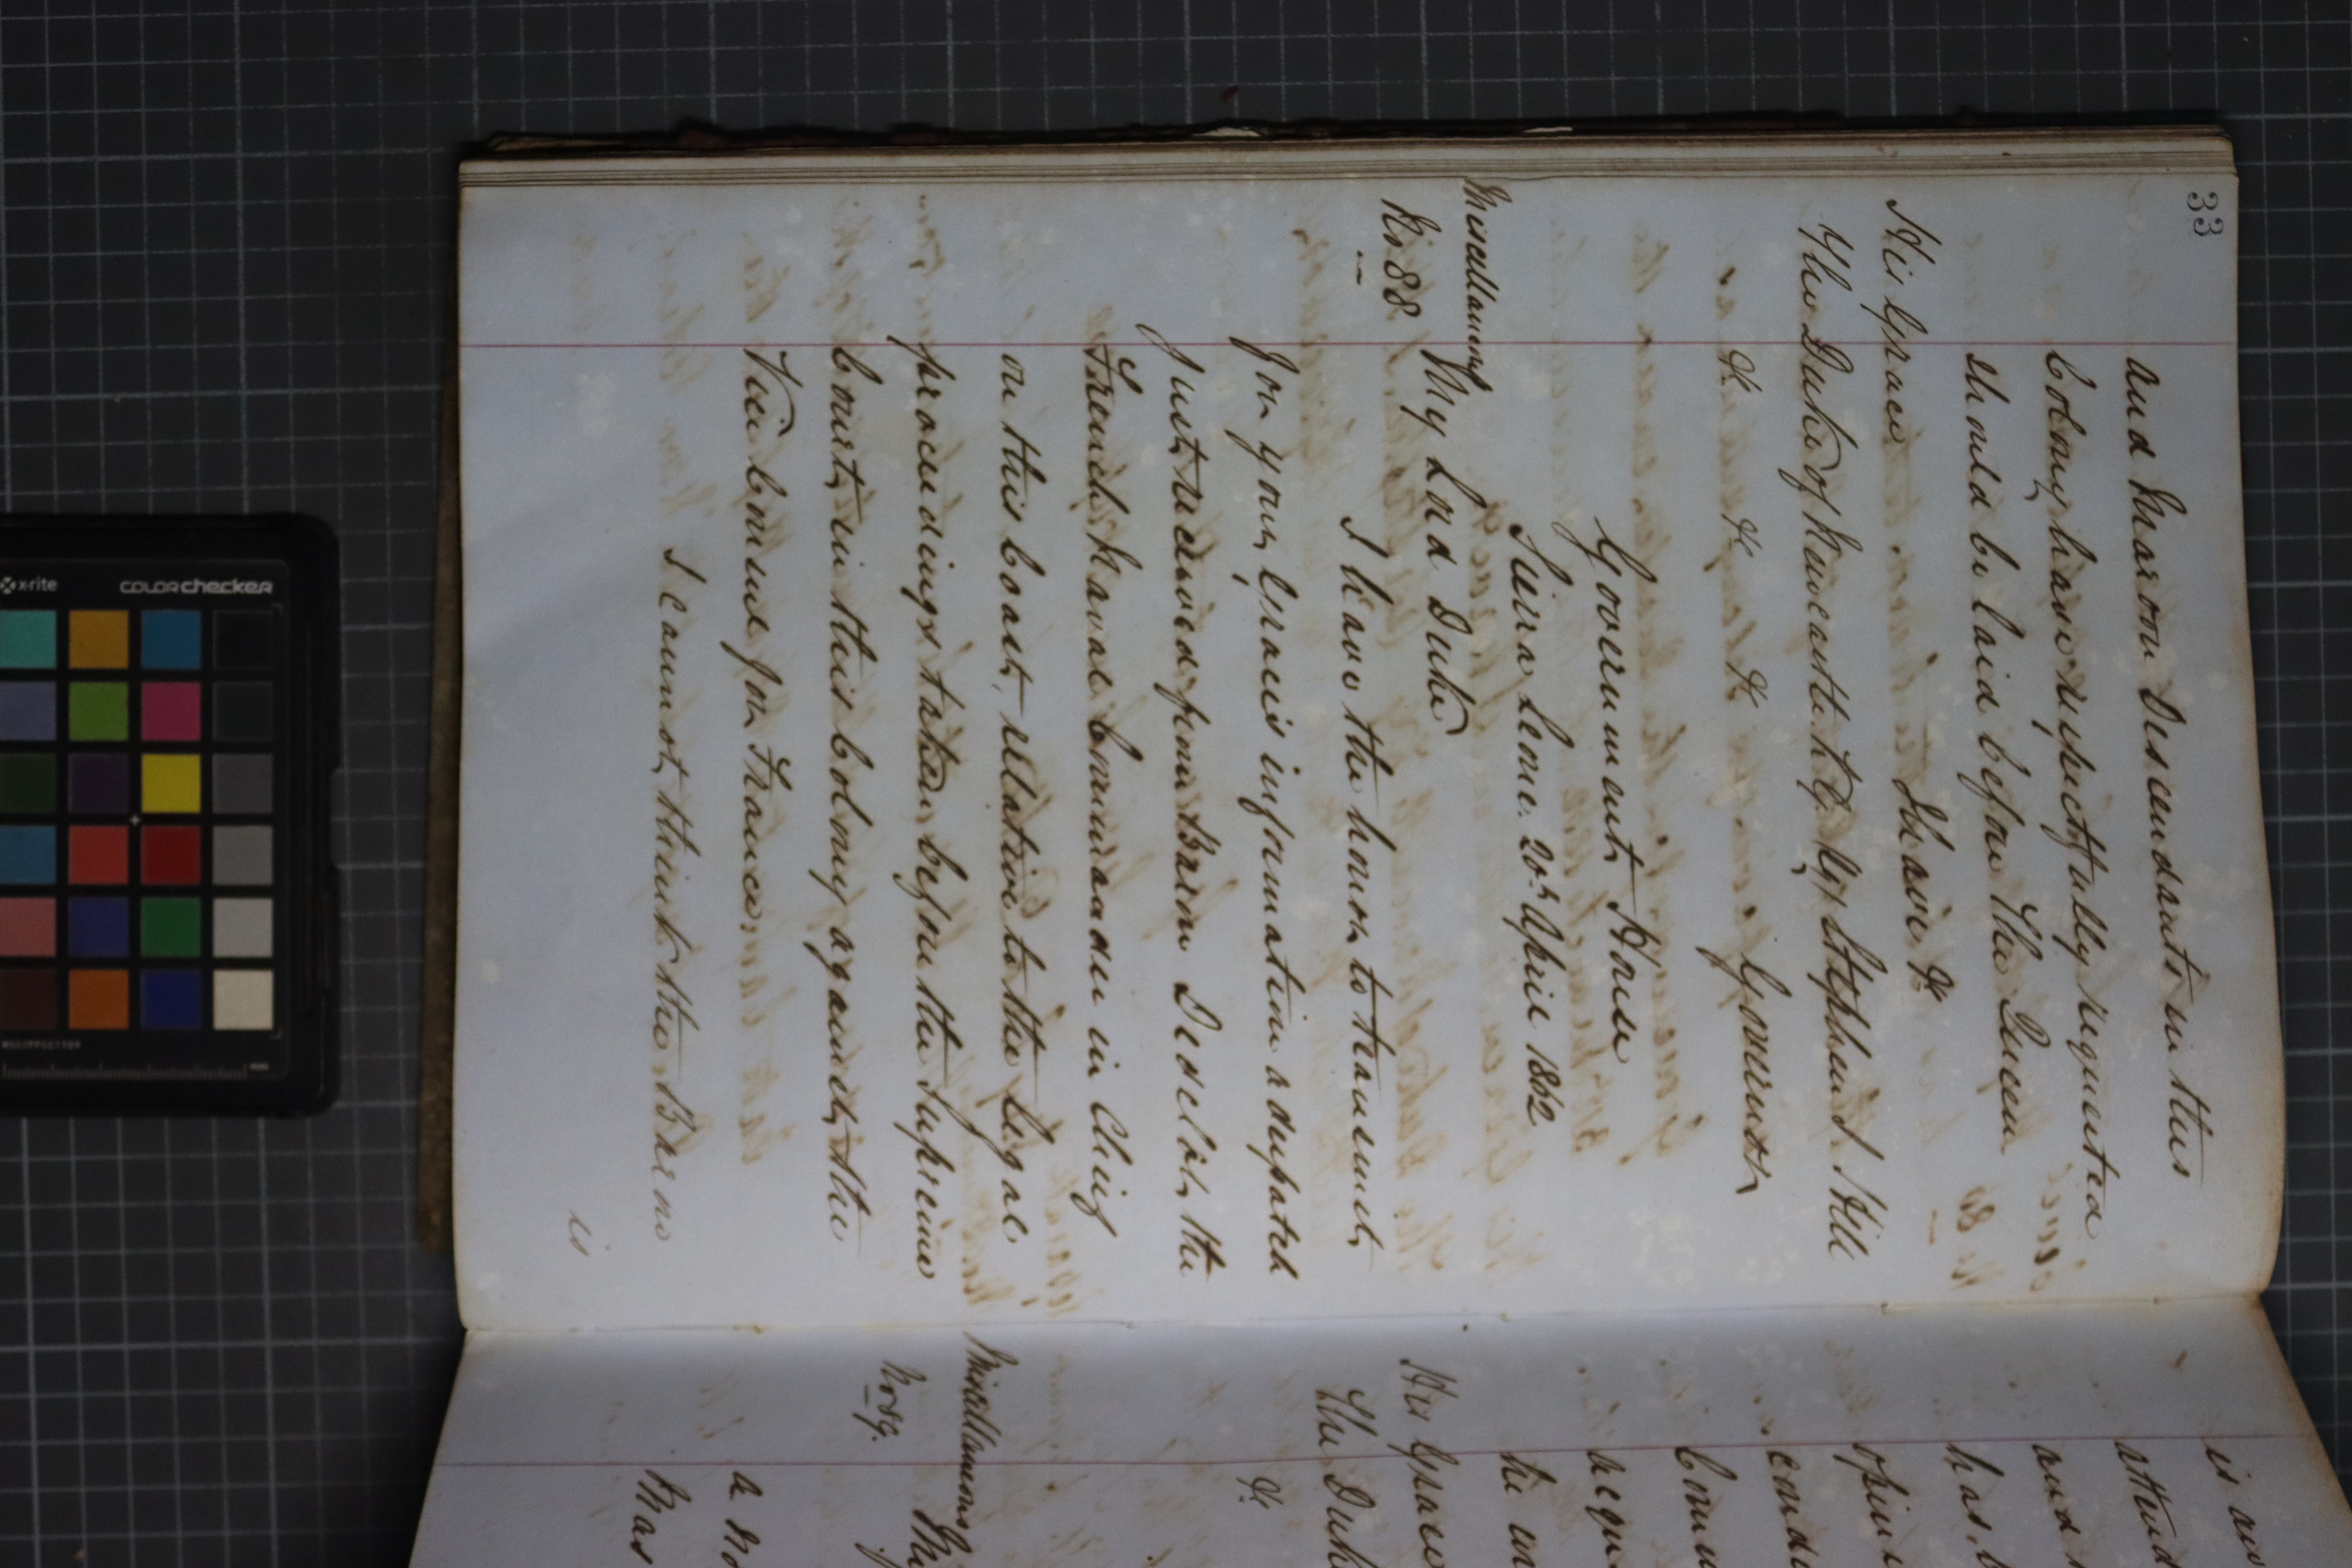 33
and Maroon Descendants in this
Colony have respectfully requested
should be laid before The Queen
I have &c
His Grace
The Duke of Newcastle K.G. Sg Stephen J. Hill
&c &c &c Governor
Government House
Sierra Leone. 20th April 1862
Miscellaneous
No 88
My Lord Duke
I have the honor to transmit,
for your Grace's information a despatch
just received from Baron Didelot, the
French Naval Commander in Chief
on this Coast, relative to the legal
proceedings taken before the Supreme
Court, in this Colony against, the
Vice Comme for France.
I cannot, think the Baron
is
is
and
has
opini
Comm
the
His Grace
The Duke
&c
Miscellaneous
No 89.
My
a
Mas
x-rite
colorchecker